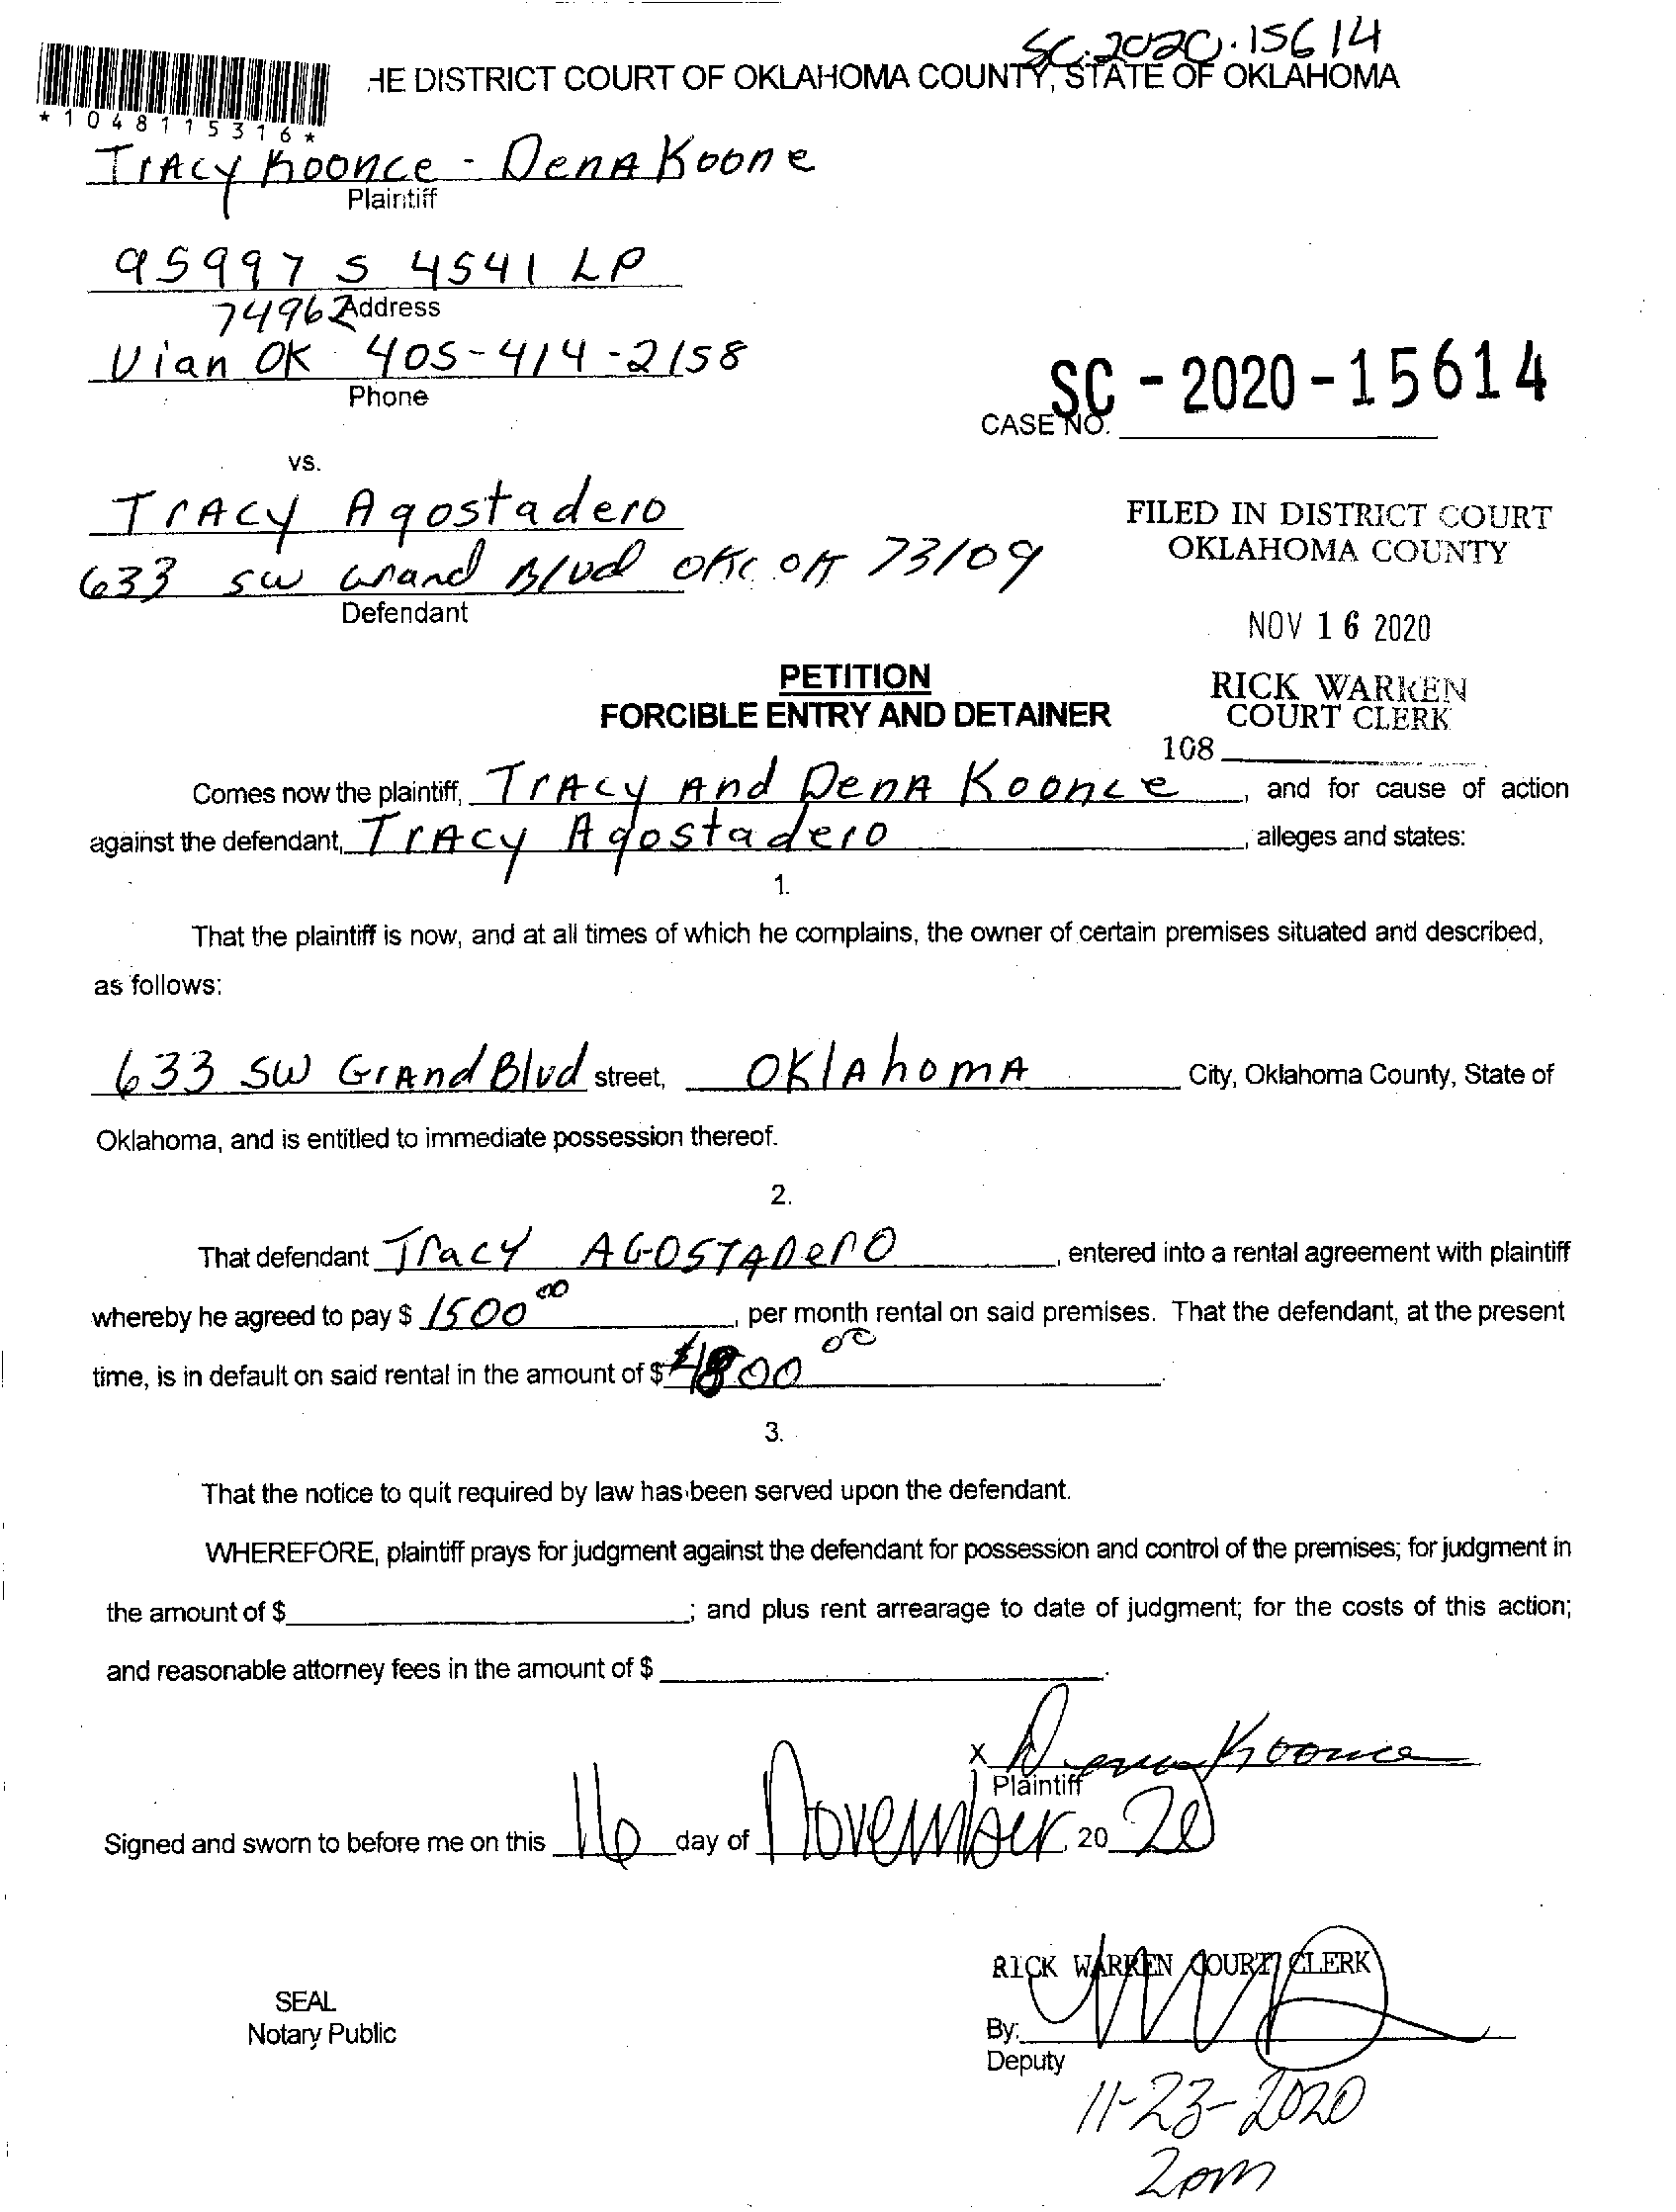 SC-2020-15614
HE DISTRICT COURT OF OKLAHOMA COUNTY, STATE OF OKLAHOMA
*1048115316*
Tracy Koonce - Dena Koone
Plaintiff
95997 S 4541 LP
74962 Address
Vian OK 405-414-2158
Phone
SC-2020-15614
CASE NO.
vs.
Tracy Agostadero
633 SW Grand Blvd OKC OK 73109
Defendant
FILED IN DISTRICT COURT
OKLAHOMA COUNTY
NOV 16 2020
RICK WARREN
COURT CLERK
108
PETITION
FORCIBLE ENTRY AND DETAINER
Comes now the plaintiff, Tracy And Dena Koonce, and for cause of action
against the defendant, Tracy Agostadero, alleges and states:
1.
That the plaintiff is now, and at all times of which he complains, the owner of certain premises situated and described,
as follows:
633 SW Grand Blvd street, Oklahoma City, Oklahoma County, State of
Oklahoma, and is entitled to immediate possession thereof.
2.
That defendant Tracy AGOSTADERO, entered into a rental agreement with plaintiff
whereby he agreed to pay $ 1500 00, per month rental on said premises. That the defendant, at the present
time, is in default on said rental in the amount of $ $4800 00.
3.
That the notice to quit required by law has been served upon the defendant.
WHEREFORE, plaintiff prays for judgment against the defendant for possession and control of the premises; for judgment in
the amount of $ ; and plus rent arrearage to date of judgment; for the costs of this action;
and reasonable attorney fees in the amount of $ .
x Dena Koonce
Plaintiff
Signed and sworn to before me on this 16 day of November, 20 20
RICK WARREN COURT CLERK
SEAL
Notary Public
By:
Deputy
11-23-2020
2pm